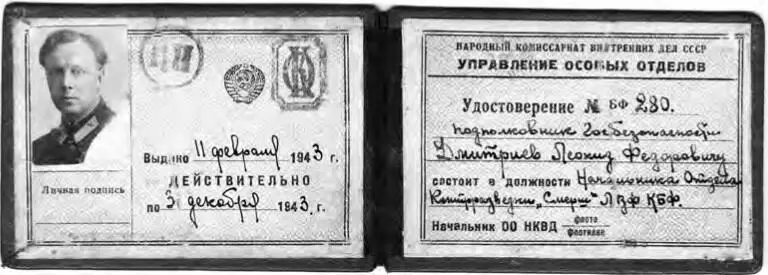 Выдано 11 февраля 1943 г.
Личная подпись
ДЕЙСТВИТЕЛЬНО
по 3 декабря 1943 г.
НАРОДНЫЙ КОМИССАРИАТ ВНУТРЕННИХ ДЕЛ СССР
УПРАВЛЕНИЕ ОСОБЫХ ОТДЕЛОВ
Удостоверение № БФ 280.
подполковник Госбезопасности
Дмитриев Леонид Федорович
состоит в должности Начальника Отдела
Контрразведки „Смерш" ЛЗФ КБФ.
Начальник ОО НКВД флота
флотилии